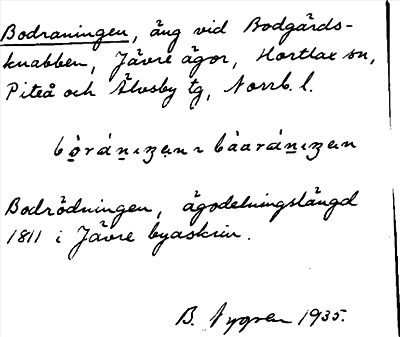 Bodraningen, äng vid Bodgårds-
knabben, Jävre ägor, Hortlax sn,
Piteå och Älvsby tg, Norrb. l.
Bodrödningen, ägodelningslängd
1811 i Jävre byaskrin.
B. Nygren 1935.